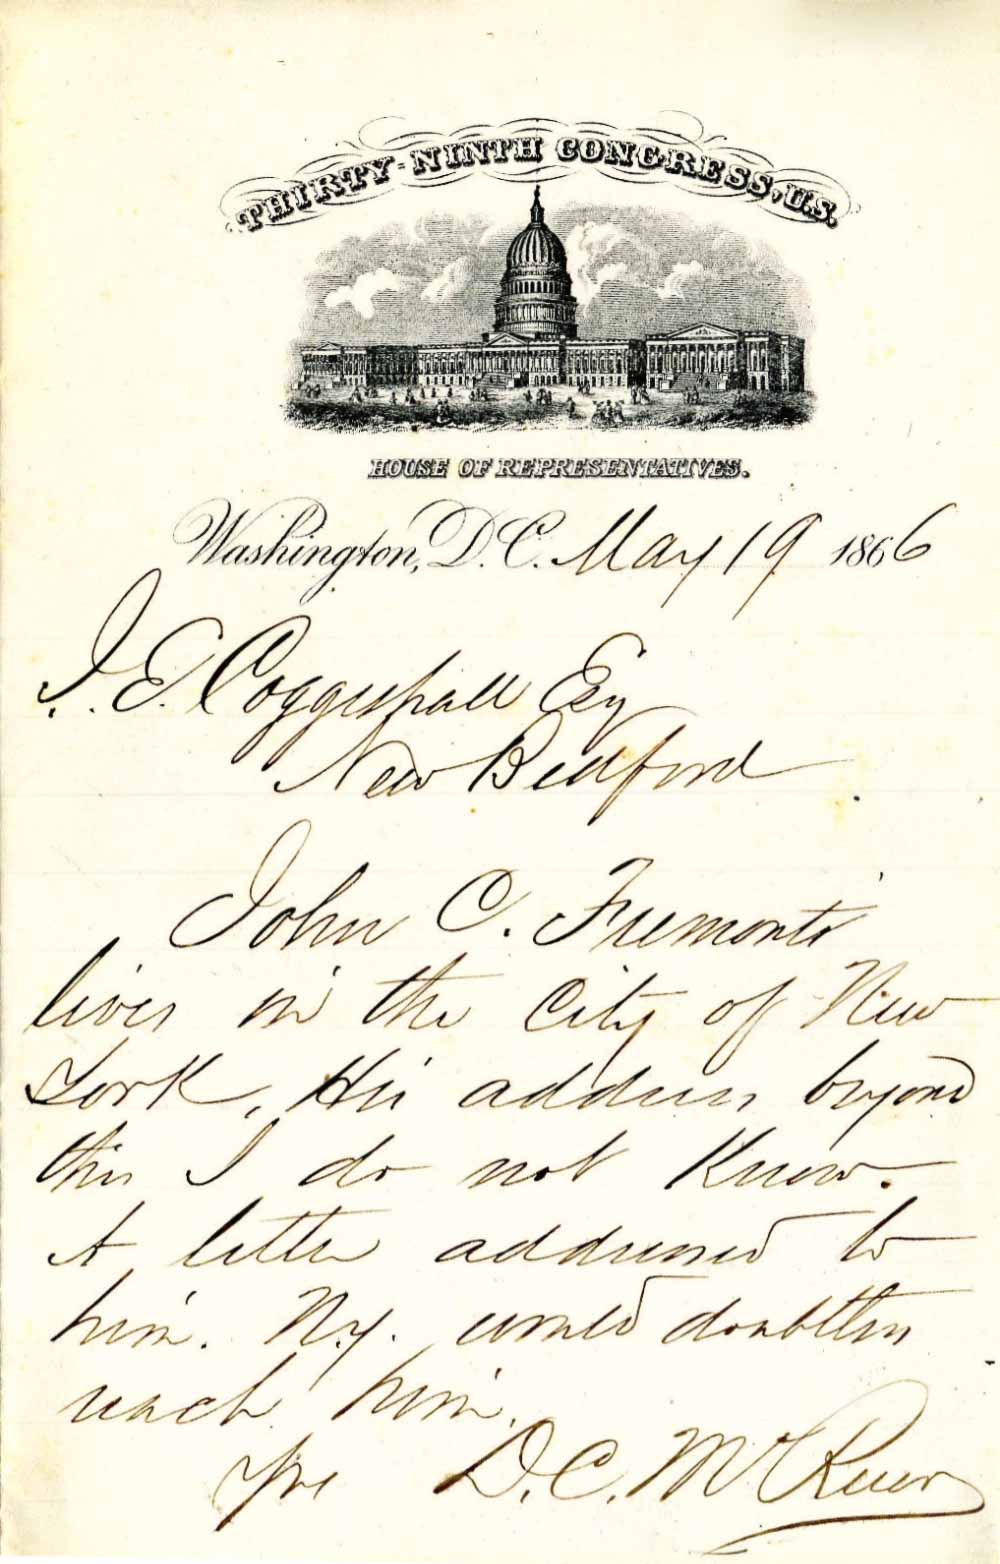 THIRTY-NINTH CONGRESS, U.S.
HOUSE OF REPRESENTATIVES.
Washington, D.C. May 19 1866
J. E. Coggeshall Esq
New Bedford
John C. Fremont
lives in the City of New
York. His address beyond
this I do not know.
A letter addressed to
him. N.y. would doubtless
reach him.
D. C. McRuer